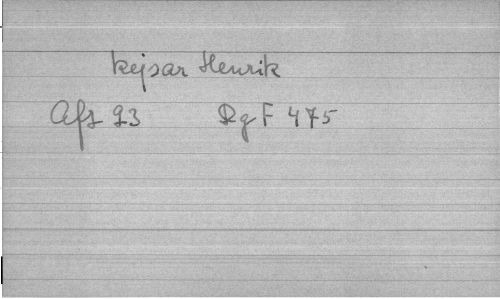 kejsar Henrik
Afz 93 Rg F 475